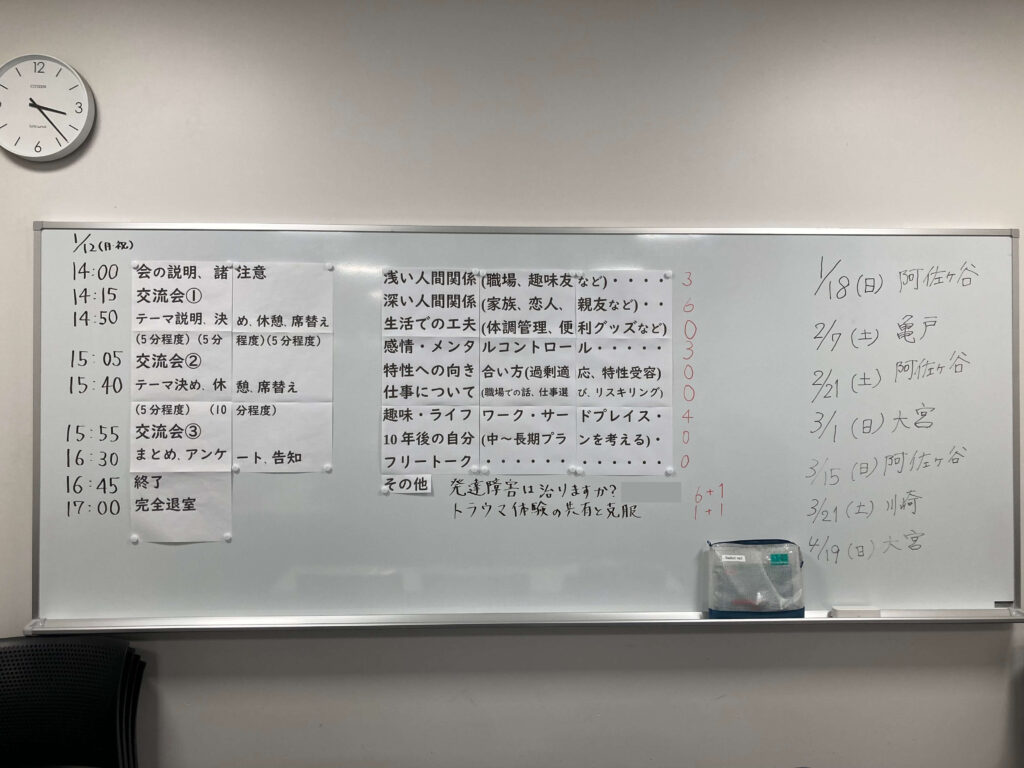 12
CITIZEN
3
6
1/12(月・祝)
14:00 会の説明、諸注意
14:15 交流会①
14:50 テーマ説明、決め、休憩、席替え
(5分程度)(5分程度)(5分程度)
15:05 交流会②
15:40 テーマ決め、休憩、席替え
(5分程度) (10分程度)
15:55 交流会③
16:30 まとめ、アンケート、告知
16:45 終了
17:00 完全退室
浅い人間関係(職場、趣味友など)・・・・ 3
深い人間関係(家族、恋人、親友など)・・ 6
生活での工夫(体調管理、便利グッズなど) 0
感情・メンタルコントロール・・・・・ 3
特性への向き合い方(過剰適応、特性受容) 0
仕事について(職場での話、仕事選び、リスキリング) 0
趣味・ライフワーク・サードプレイス・ 4
10年後の自分(中～長期プランを考える)・ 0
フリートーク・・・・・・・・・ 0
その他 発達障害は治りますか? 6+1
トラウマ体験の共有と克服 1+1
1/18(日) 阿佐ヶ谷
2/7(土) 亀戸
2/21(土) 阿佐ヶ谷
3/1(日) 大宮
3/15(日) 阿佐ヶ谷
3/21(土) 川崎
4/19(日) 大宮